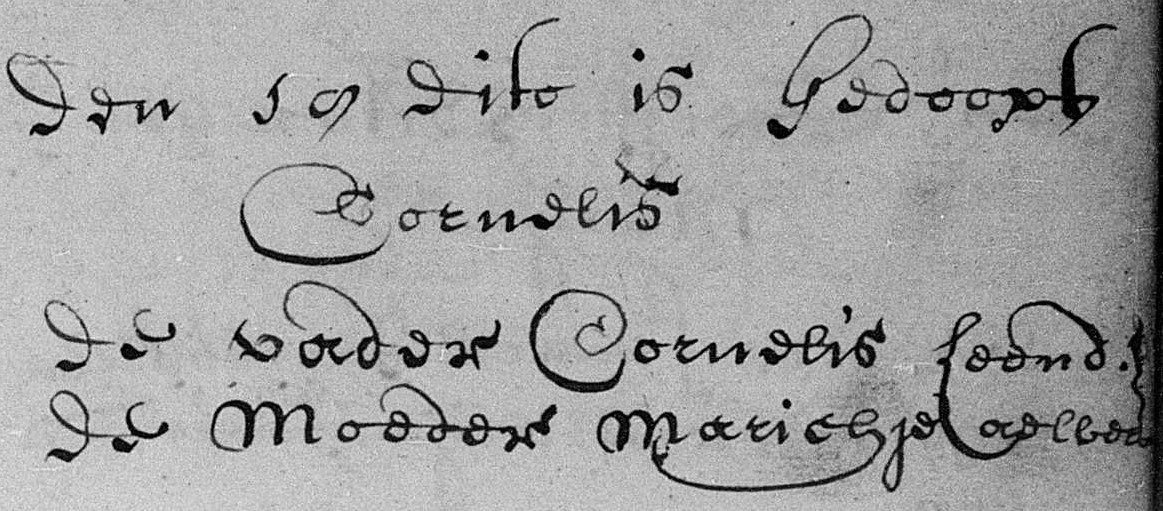 Den 19 dito is Gedoopt
Cornelis
De vader Cornelis Leend.
De Moeder Marichje